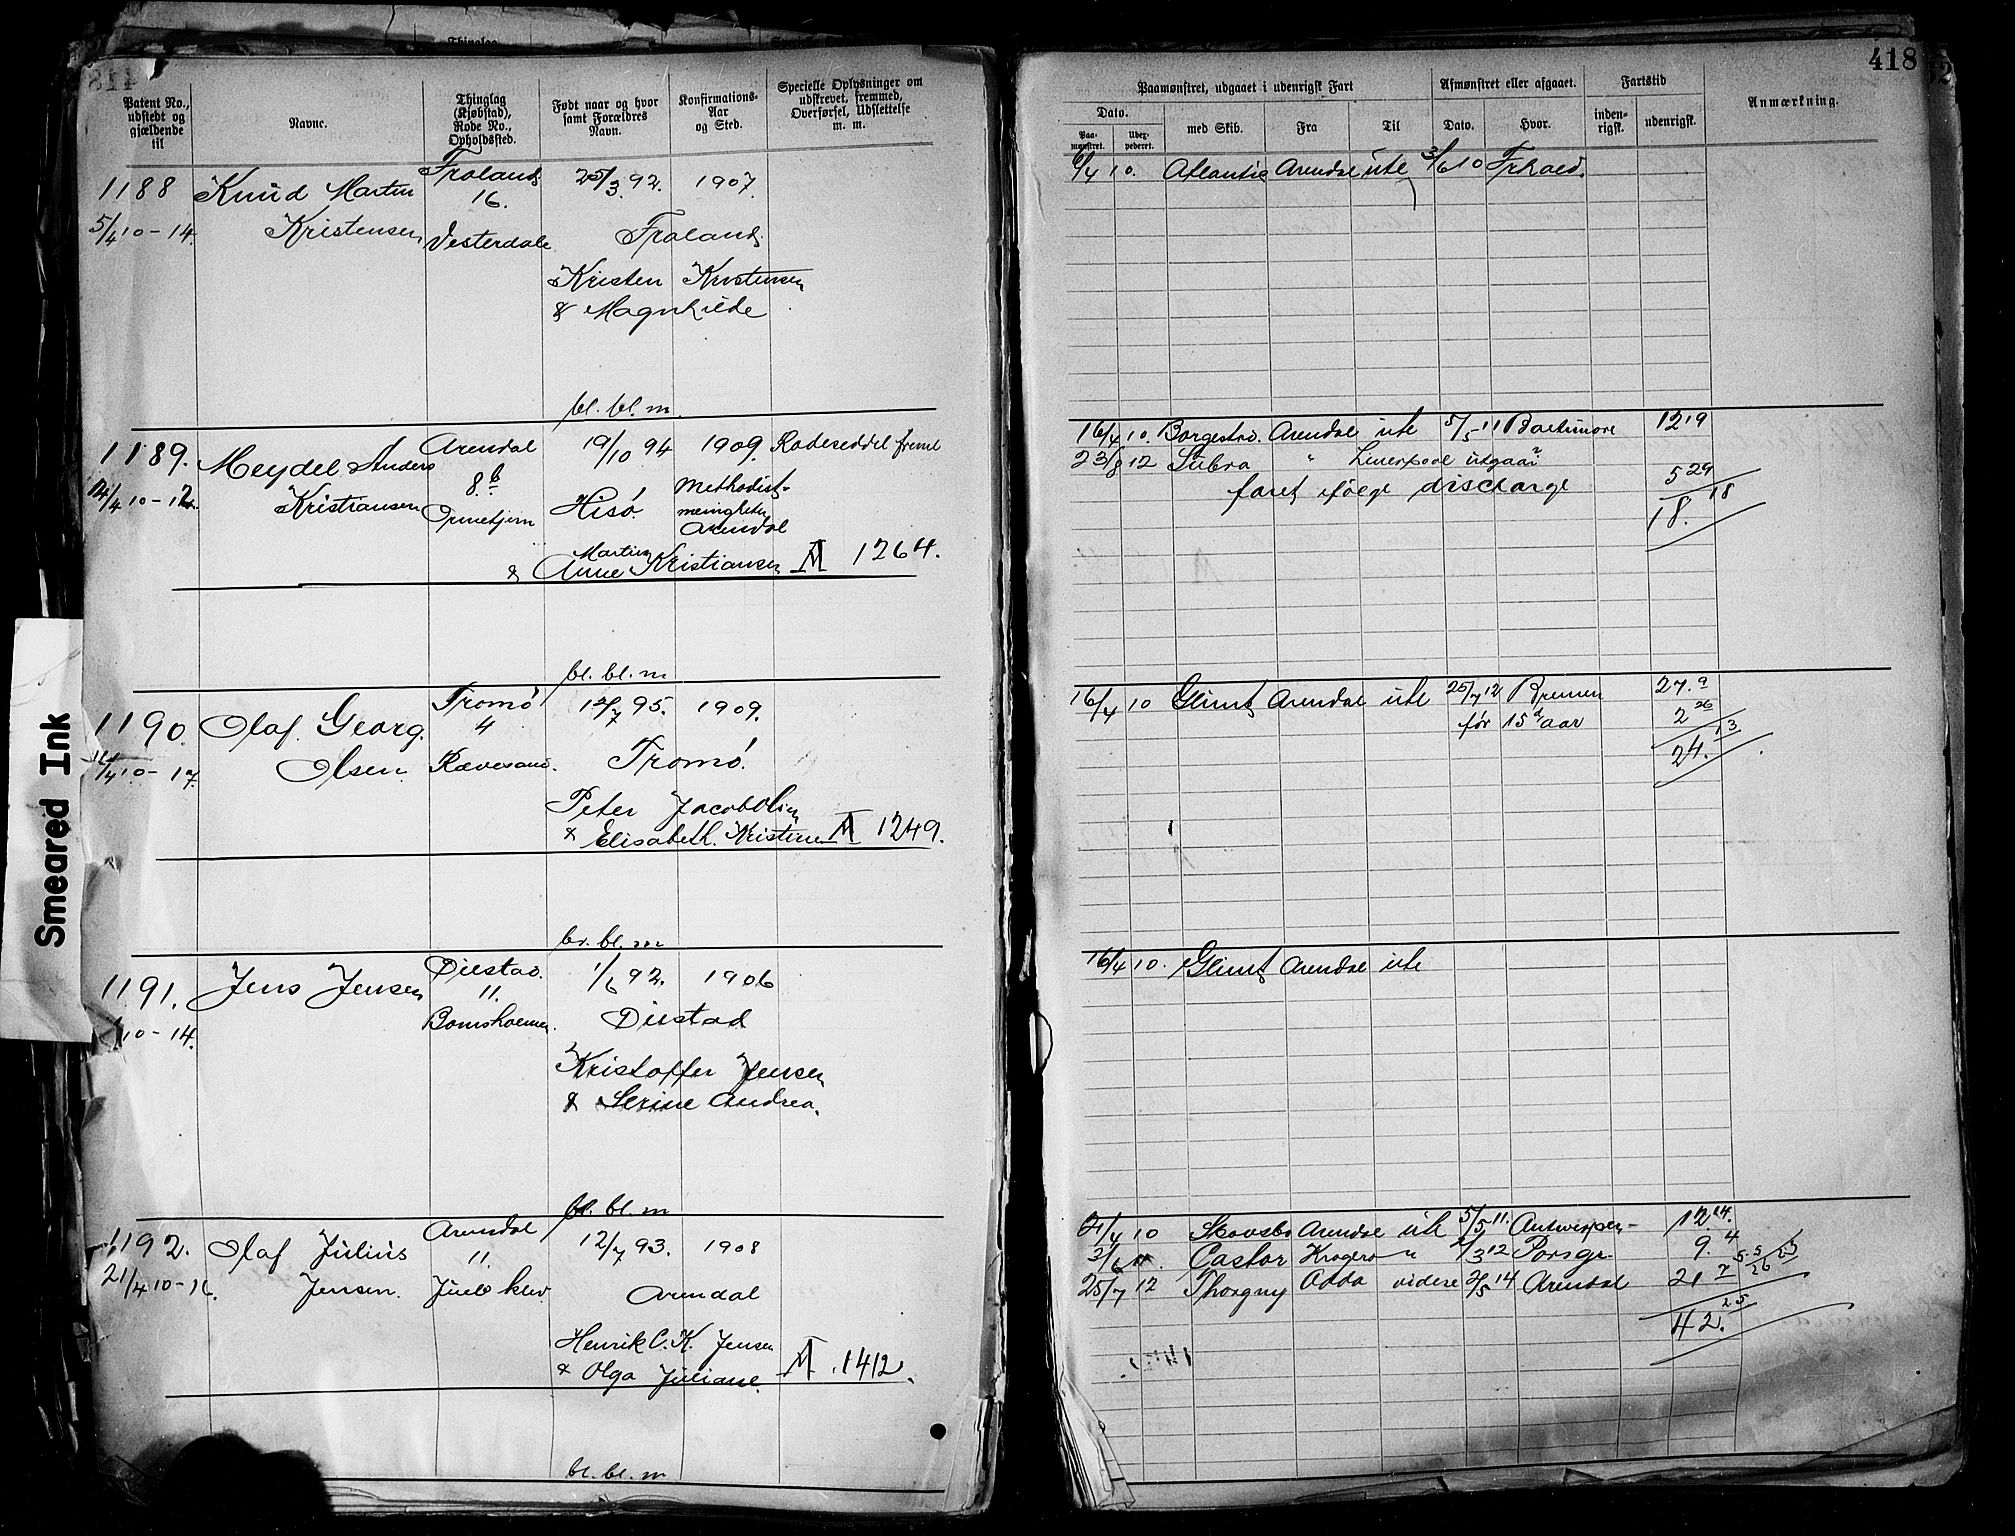 418
Patent No., udstedt og gjældende til
Navne.
Thinglag (Kjøbstad), Rode No., Opholdssted.
Født naar og hvor samt Forældres Navn.
Konfirmations-Aar og Sted.
Specielle Oplysninger om udskrevet, fremmed, Overførsel, Udslettelse m. m.
Paamønstret, udgaaet i udenrigsk Fart
Afmønstret eller afgaaet.
Fartstid
Anmærkning.
Dato.
Paa-mønstret.
med Skib.
Fra
Til
Dato.
Hvor.
inden-rigsk.
udenrigsk.
1188 Knud Martin Froland 25/3 92. 1907
16.
5/4 10-14. Kristensen Vesterdale Froland
Kristen Kristensen
& Magnhilde
bl. bl. m.
6/4 10. Atlantic Arendal ute 3/6 10
1189. Meydel Anders Arendal 19/10 94 1909. Rodeseddel
8 b
14/4 10-12. Kristiansen Hisø. Methodist-
Arendal
Martin
& Anne Kristiansen M 1264.
bl. bl. m
16/4 10. Borgestad. Arendal ute 5/5 11 Baltimore 12 19
23/8 12 Liverpool
ifølge discharge
5 29
18. 18
1190. Olaf Georg. Tromø 12/7 95. 1909.
4
16/4 10-17. Olsen. Rævesand. Tromø.
Peter Jacob Olsen
& Elisabeth Kristine M 1249.
br. bl. m
16/4 10 Glimt Arendal ute 25/7 12 Bremen 27. 9
før 15 d aar 2 26
24. 13
1191. Jens Jensen Diestad. 1/6 92. 1906
11.
10-14. Diestad
Kristoffer Jensen
& Serine Andrea.
bl. bl. m
16/4 10. Glimt Arendal ute
1192. Olaf Julius Arendal 12/7 93. 1908
11.
21/4 10-16. Jensen. Arendal
Henrik C. K. Jensen
& Olga Juliane. M 1412.
bl. bl. m
21/4 10 Arendal ute 5/5 11. Antwerpen 12 14.
Castor Kragerø 3 12 Porsgr. 9. 4
25/7 12 Thorgny Adda videre 2/5 14 Arendal 21 7
42. 25
Smeared Ink